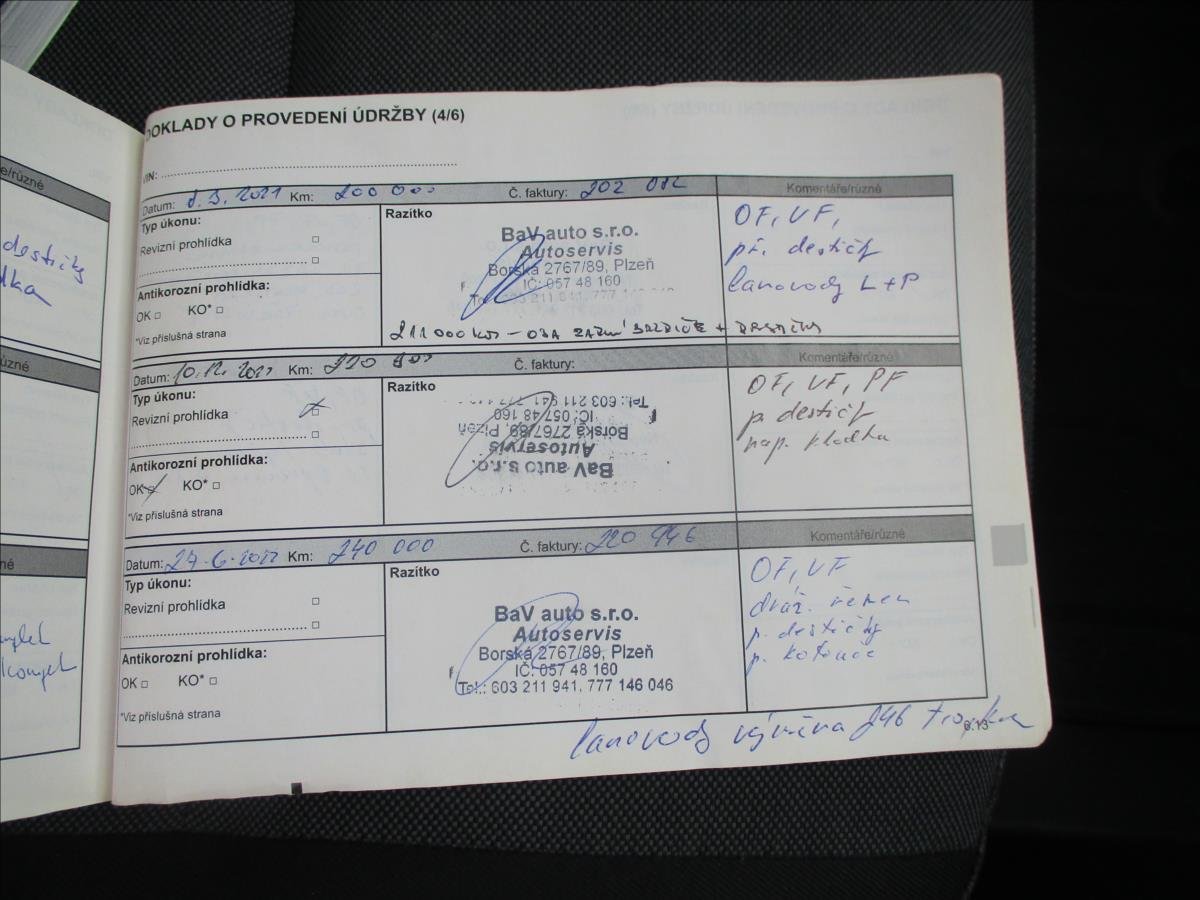 DOKLADY O PROVEDENÍ ÚDRŽBY (4/6)
VIN:
e/různé
destičky
Datum: 8.3.2021 Km: 200 000 Č. faktury: 202 012 Komentáře/různé
Typ úkonu:
Revizní prohlídka
Antikorozní prohlídka:
OK KO*
*Viz příslušná strana
Razítko
BaV auto s.r.o.
Autoservis
Borská 2767/89, Plzeň
IČ: 057 48 160
Tel.: 603 211 941, 777 146 046
211 000 km – OBA ZADNÍ BRZDIČE + DESTIČKY
OF, VF,
př. destičky
lanovody L+P
zné
Datum: 10.12.2021 Km: 220 000 Č. faktury: Komentáře/různé
Typ úkonu:
Revizní prohlídka
Antikorozní prohlídka:
OK KO*
*Viz příslušná strana
Razítko
BaV auto s.r.o.
Autoservis
Borská 2767/89, Plzeň
IČ: 057 48 160
Tel.: 603 211 941, 777
OF, VF, PF
p. destičky
nap. kladka
né
Datum: 27.6.2022 Km: 240 000 Č. faktury: 220 946 Komentáře/různé
Typ úkonu:
Revizní prohlídka
Antikorozní prohlídka:
OK KO*
*Viz příslušná strana
Razítko
BaV auto s.r.o.
Autoservis
Borská 2767/89, Plzeň
IČ: 057 48 160
Tel.: 603 211 941, 777 146 046
OF, VF
dráž. řemen
p. destičky
p. kotouče
lanovody výměna 246
6.13